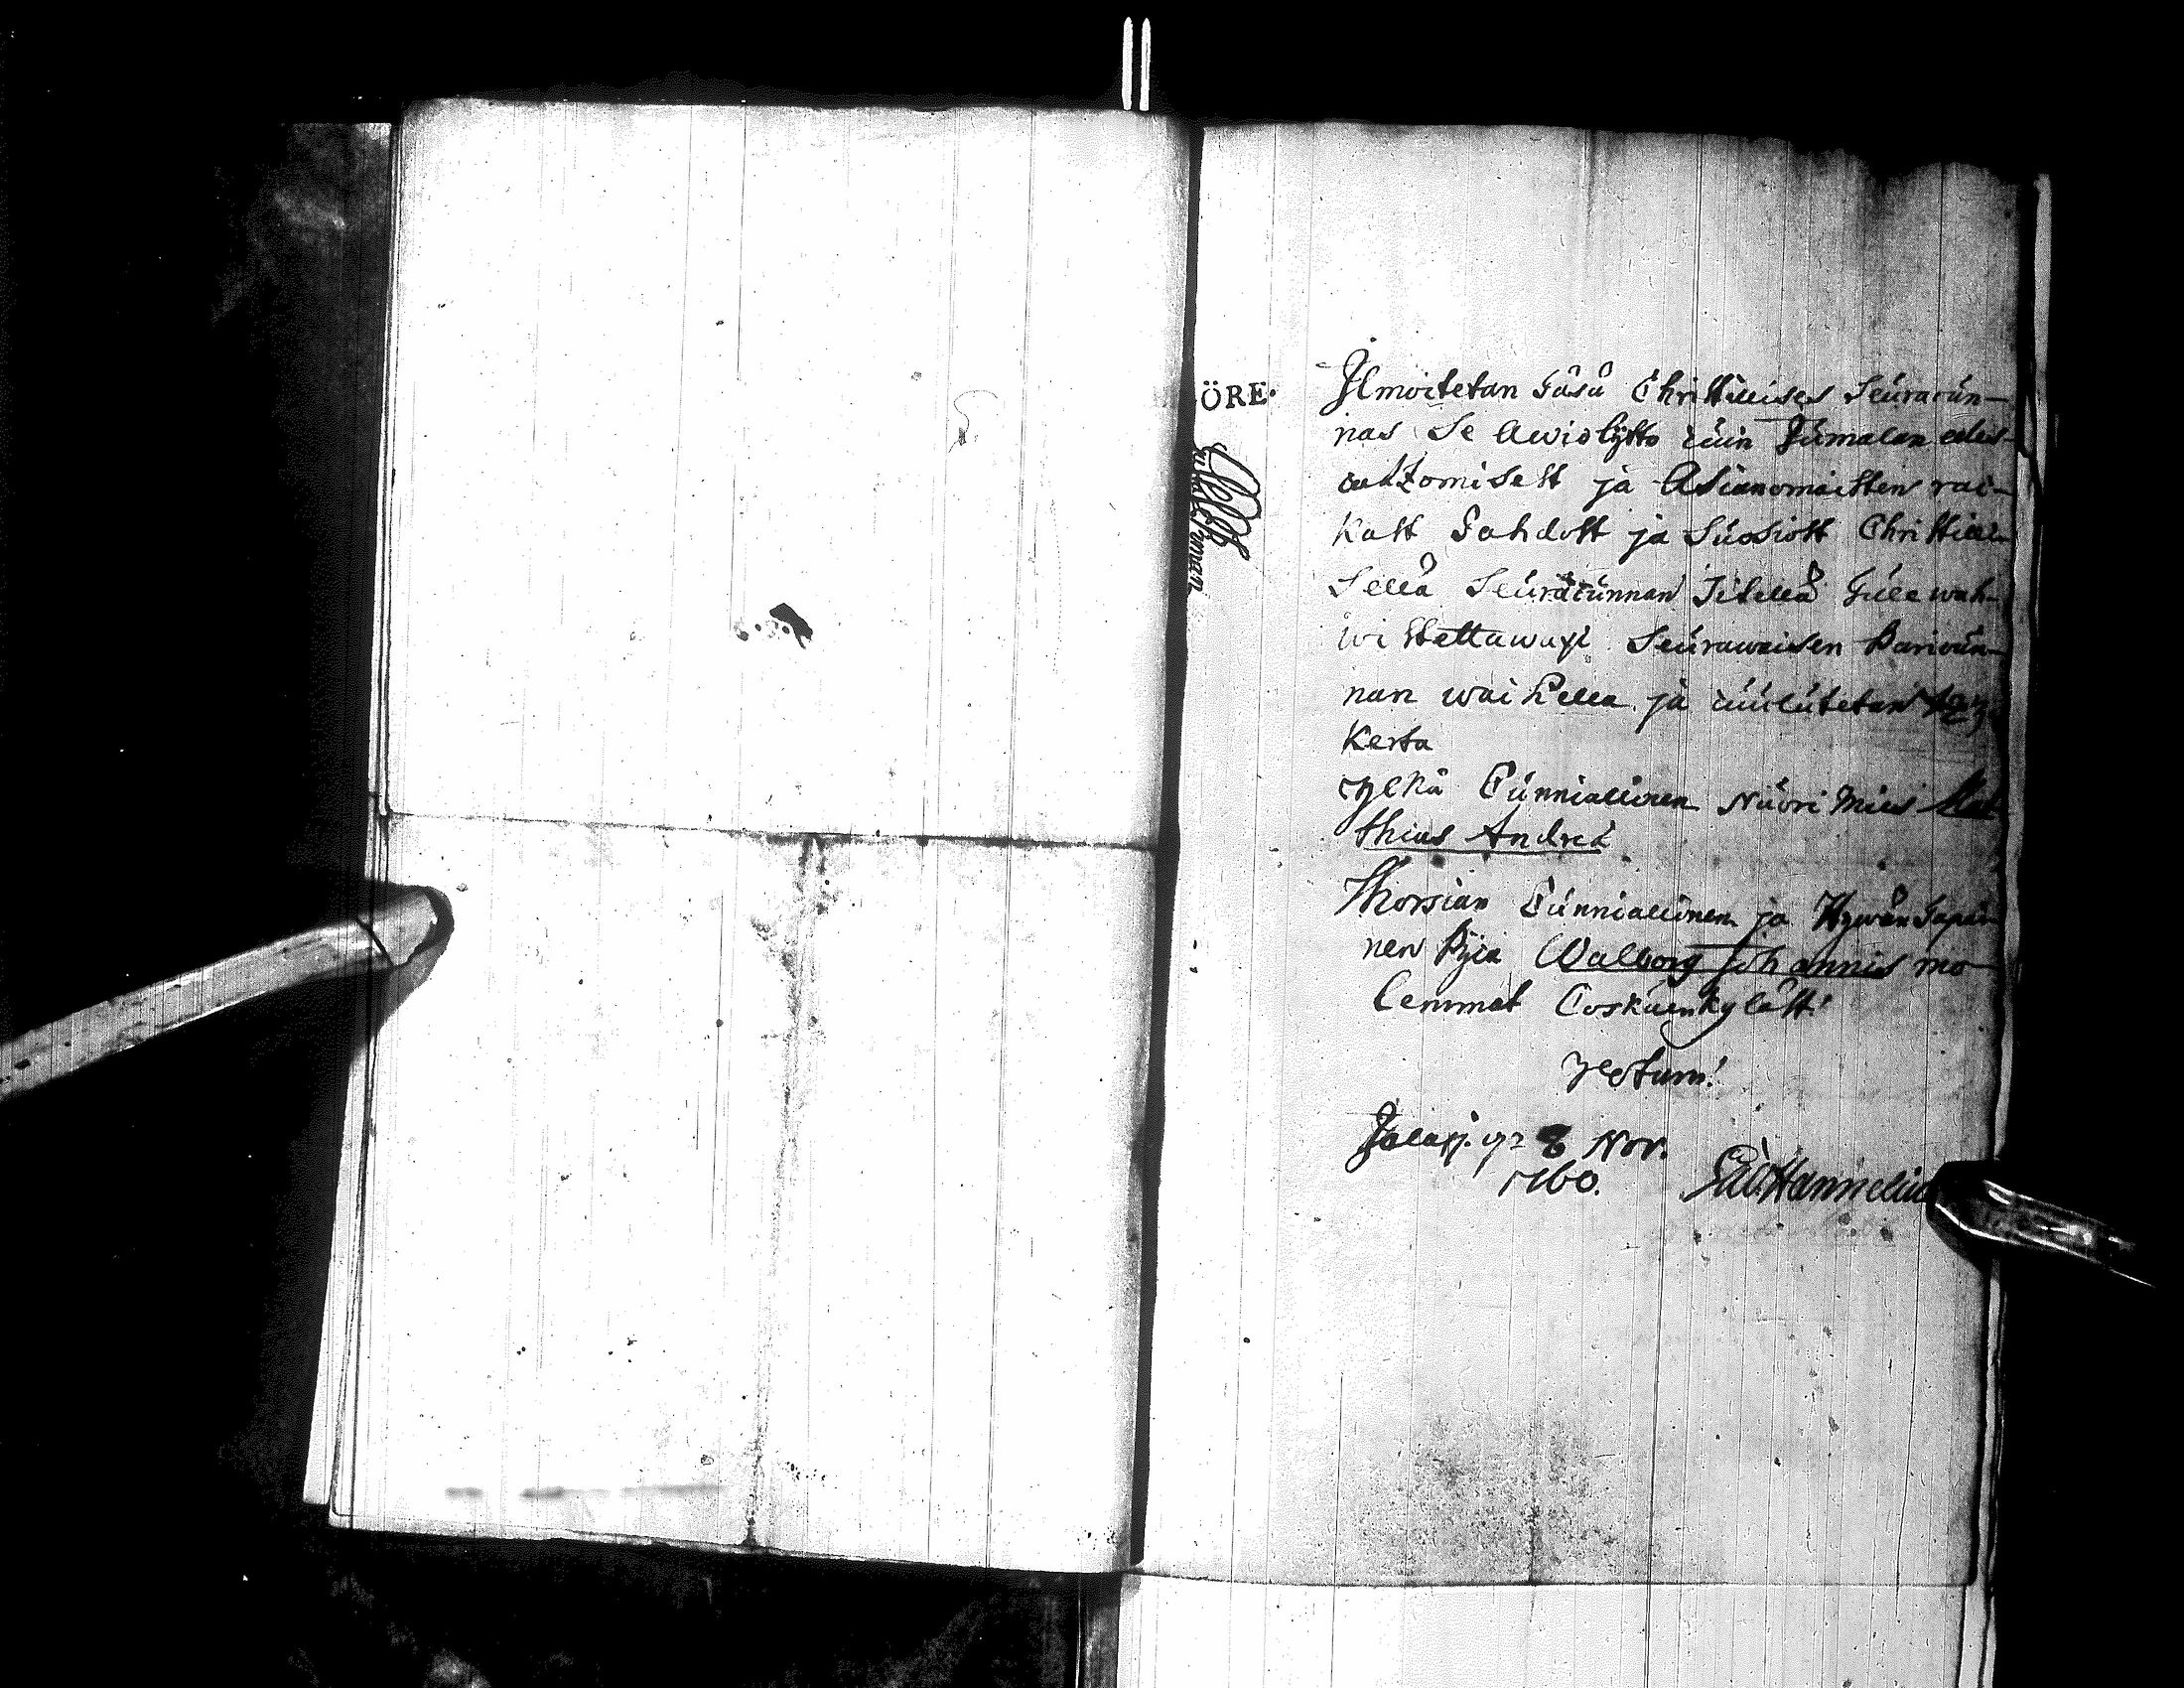 ÖRE.
Ilmoitetan Täsä Christilises Seuracun-
nas se Awiokytky cuin Jumalan edes-
catzomisest ja Asianomaisten rac-
kast Tahdost ja Suosiost Christilli-
sellä Seuracunnan Tilalla Tule wah-
wistettawaxi seurawaisen Paricun-
nan waihella, ja cuulutetan
Kerta
Ylkä Cunniallinen Nuori Mies Mat-
thias Andreæ
Morsian Cunniallinen ja Hywän Tapai-
nen Pijca Walborg Johannis mo-
lemmat Coskuenkyläst!
Jalasj. 8 Nov.
1760. Hannelius